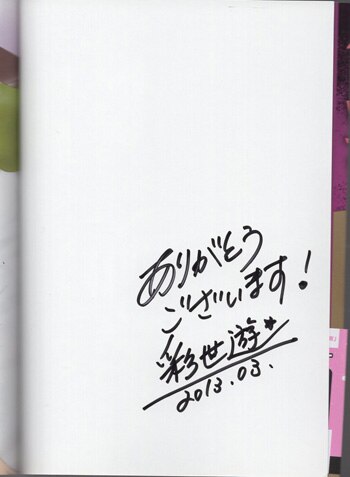 ありがとう
ございます!
彩世遊☆
2013.03.